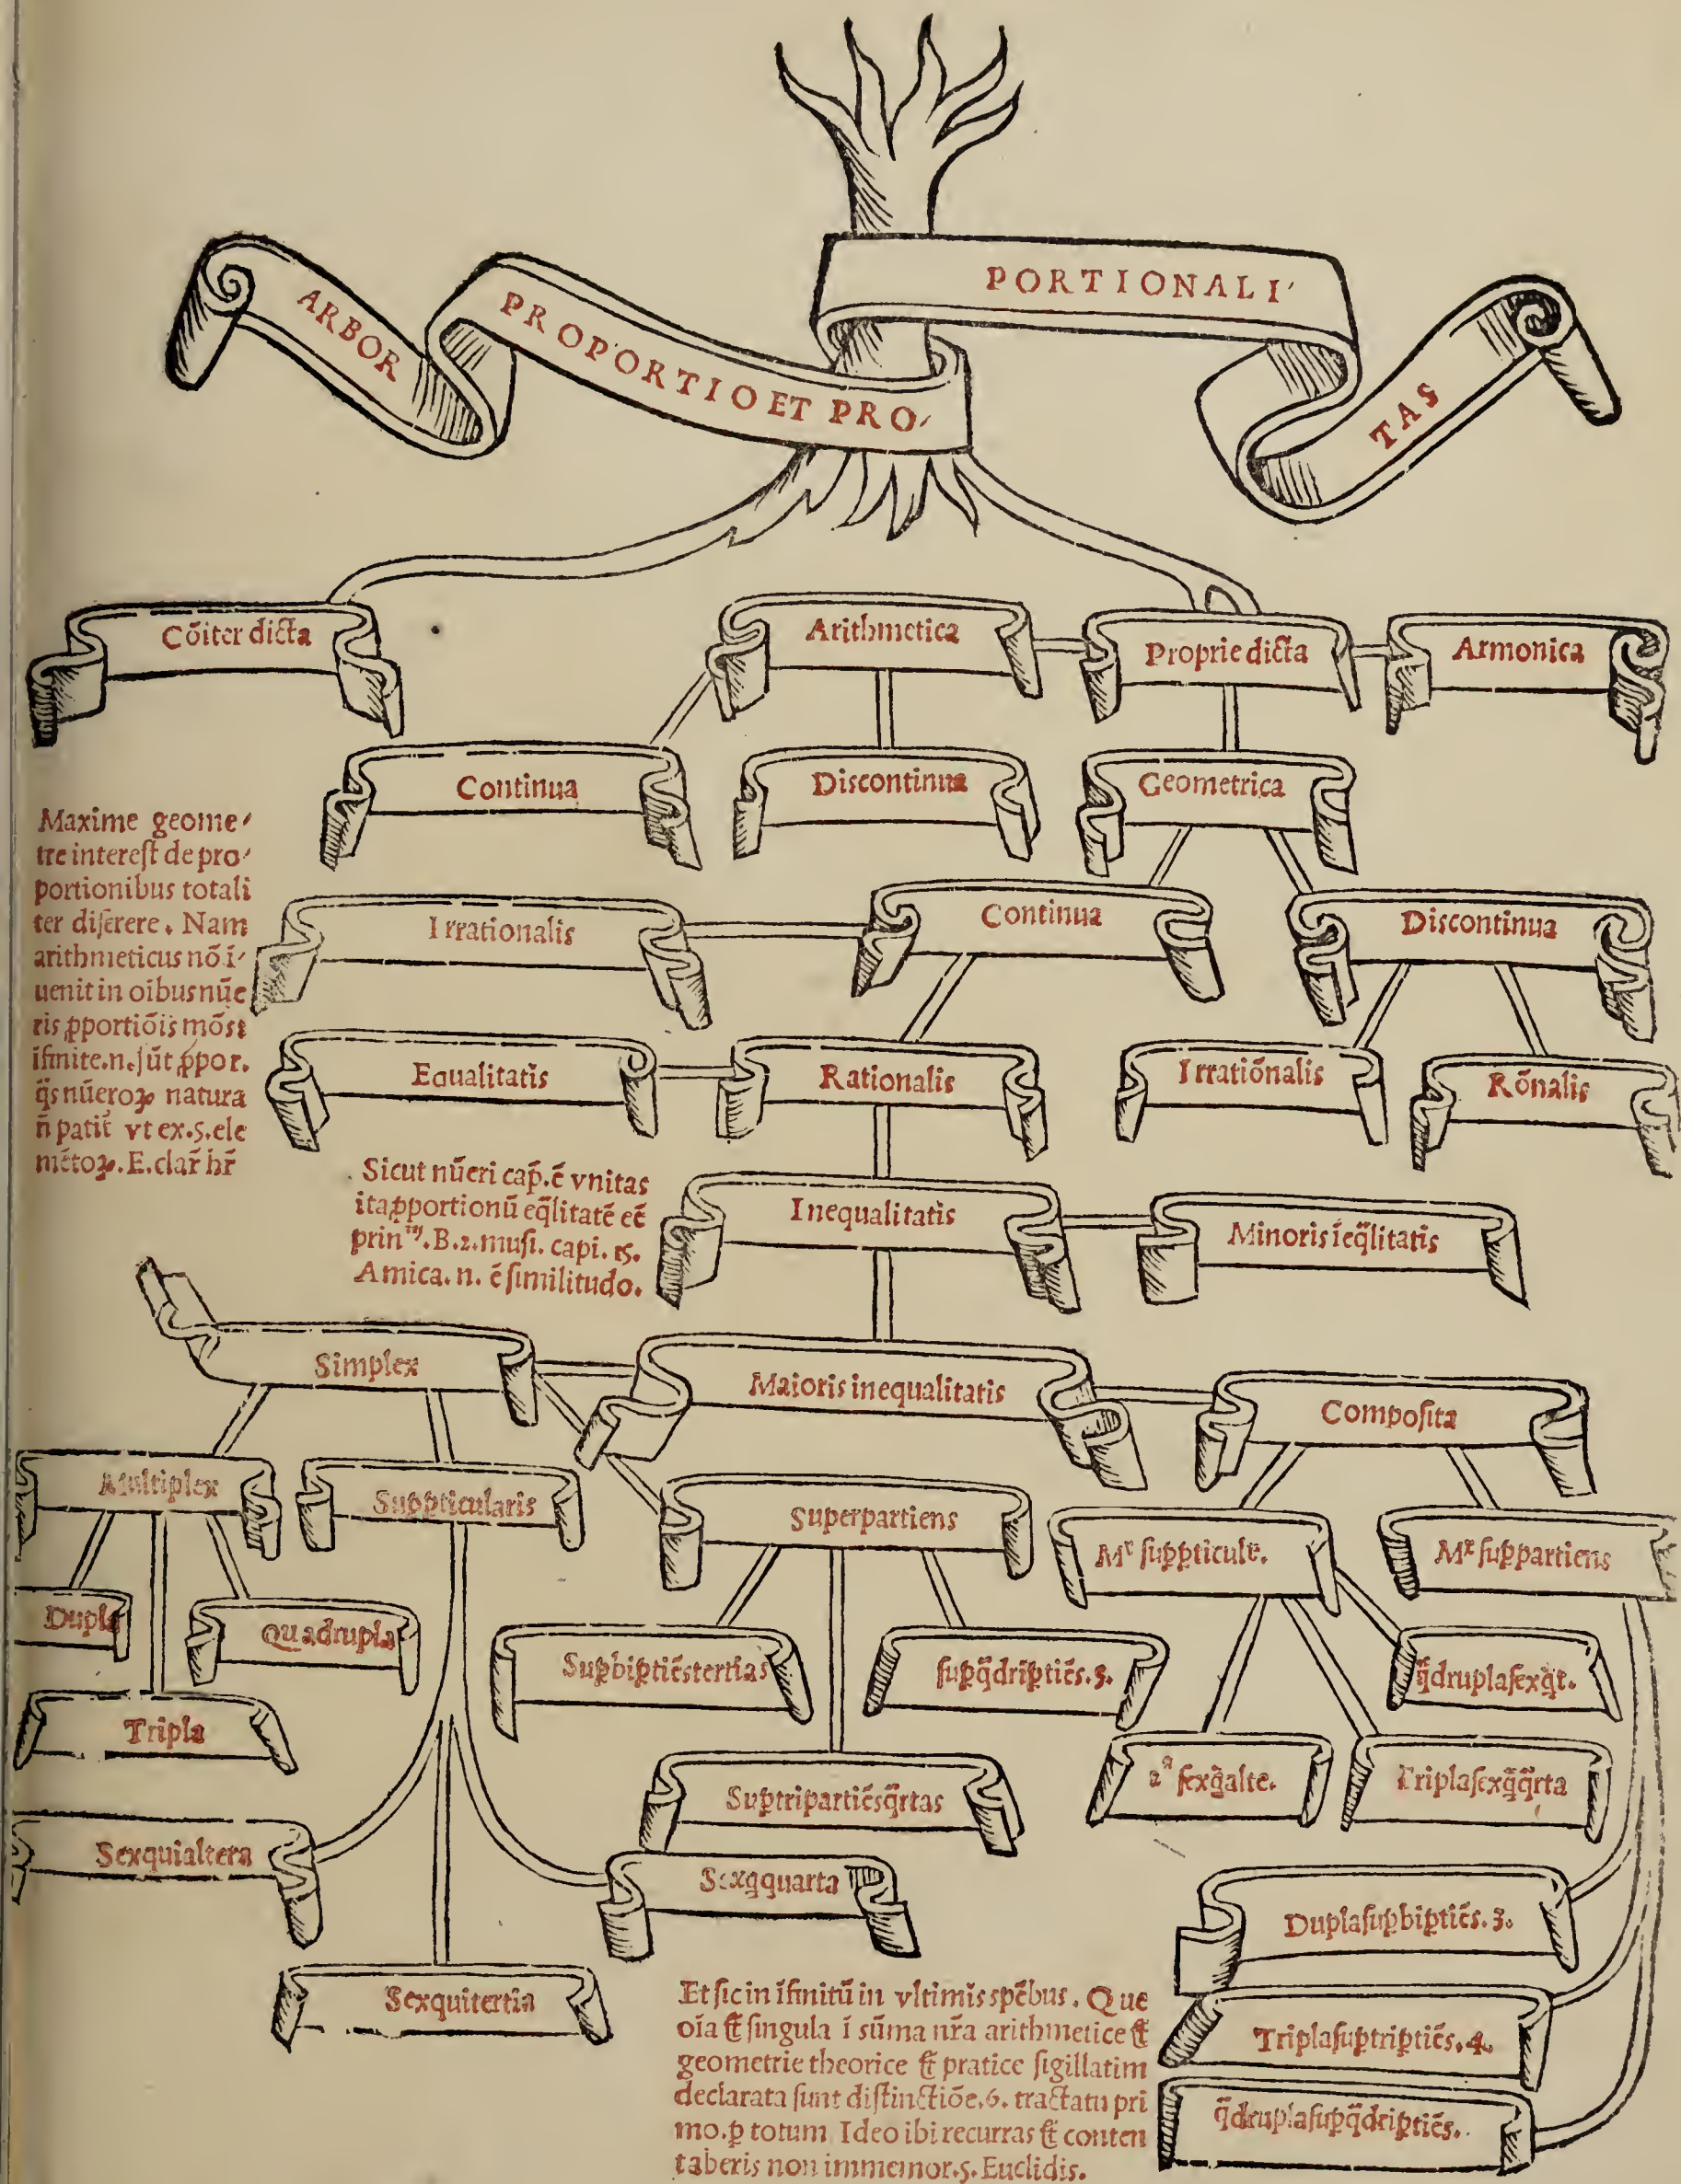 ARBOR
PROPORTIO ET PRO⸗
PORTIONALI⸗
TAS
Cōiter dicta
Arithmetica
Proprie dicta
Armonica
Continua
Discontinua
Geometrica
Maxime geome⸗
tre intereſt de pro⸗
portionibus totali
ter diſerere. Nam
arithmeticus nō ī⸗
uenit in oibus nūe
ris ꝓportiōis mōs:
īfinite.n.ſūt ꝓpor.
q̄s nūeroꝝ natura
n̄ patit̄ vt ex.5.ele
mētoꝝ.E.clar̄ hr̄
Irrationalis
Continua
Discontinua
Equalitatis
Rationalis
Irratiōnalis
Rōnalis
Sicut nūeri cap̄.ē vnitas
ita ꝓportionū eq̄litatē eē
prinᵐ.B.2.muſi. capi. 15.
Amica. n. ē ſimilitudo.
Inequalitatis
Minoris īeq̄litatis
Simplex
Maioris inequalitatis
Compoſita
Multiplex
Suꝑꝑticularis
Superpartiens
Mˣ ſuꝑꝑticule.
Mˣ ſuꝑpartiens
Dupla
Quadrupla
Suꝑbiꝑtiēstertias
ſuꝑq̄driꝑtiēs.5.
q̄druplaſexq̄t.
Tripla
Suꝑtripartiēsq̄rtas
2ᵃ ſexq̄alte.
Triplaſexq̄q̄rta
Sexquialtera
Sexq̄quarta
Duplaſuꝑbiꝑtiēs.3.
Sexquitertia
Triplaſuꝑtriꝑtiēs.4.
q̄druplaſuꝑq̄driꝑtiēs.
Et ſic in īfinitū in vltimis spēbus. Que
oīa & ſingula ī sūma nr̄a arithmetice &
geometrie theorice & pratice ſigillatim
declarata ſunt diſtinctiōe.6. tractatu pri
mo.ꝑ totum Ideo ibi recurras & conten
taberis non immemor.5. Euclidis.